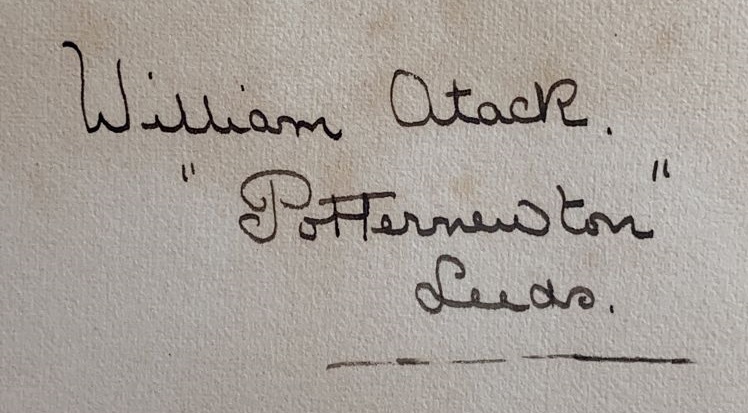 William Atack.
"Potternewton"
Leeds.